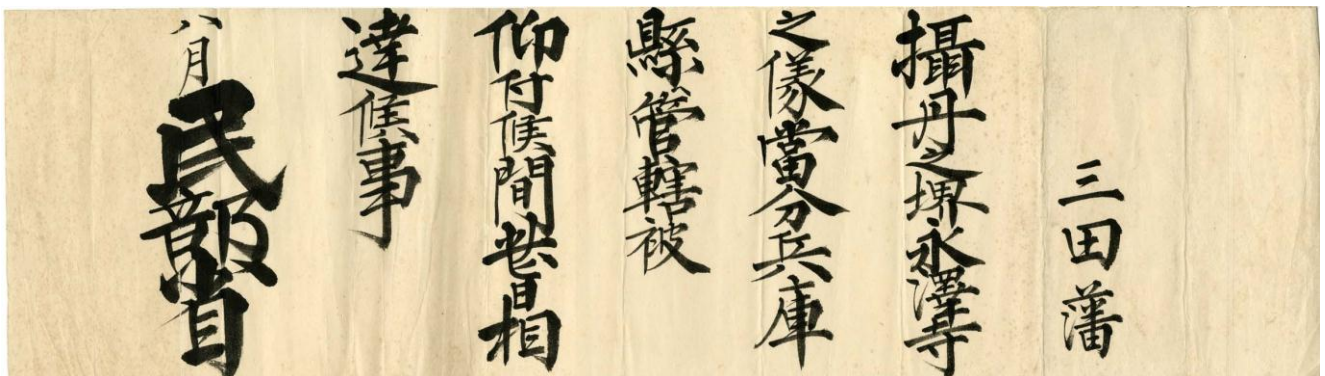 三田藩
攝丹之堺永澤寺
之儀當分兵庫
縣管轄被
仰付候間此旨相
達候事
八月
民部省